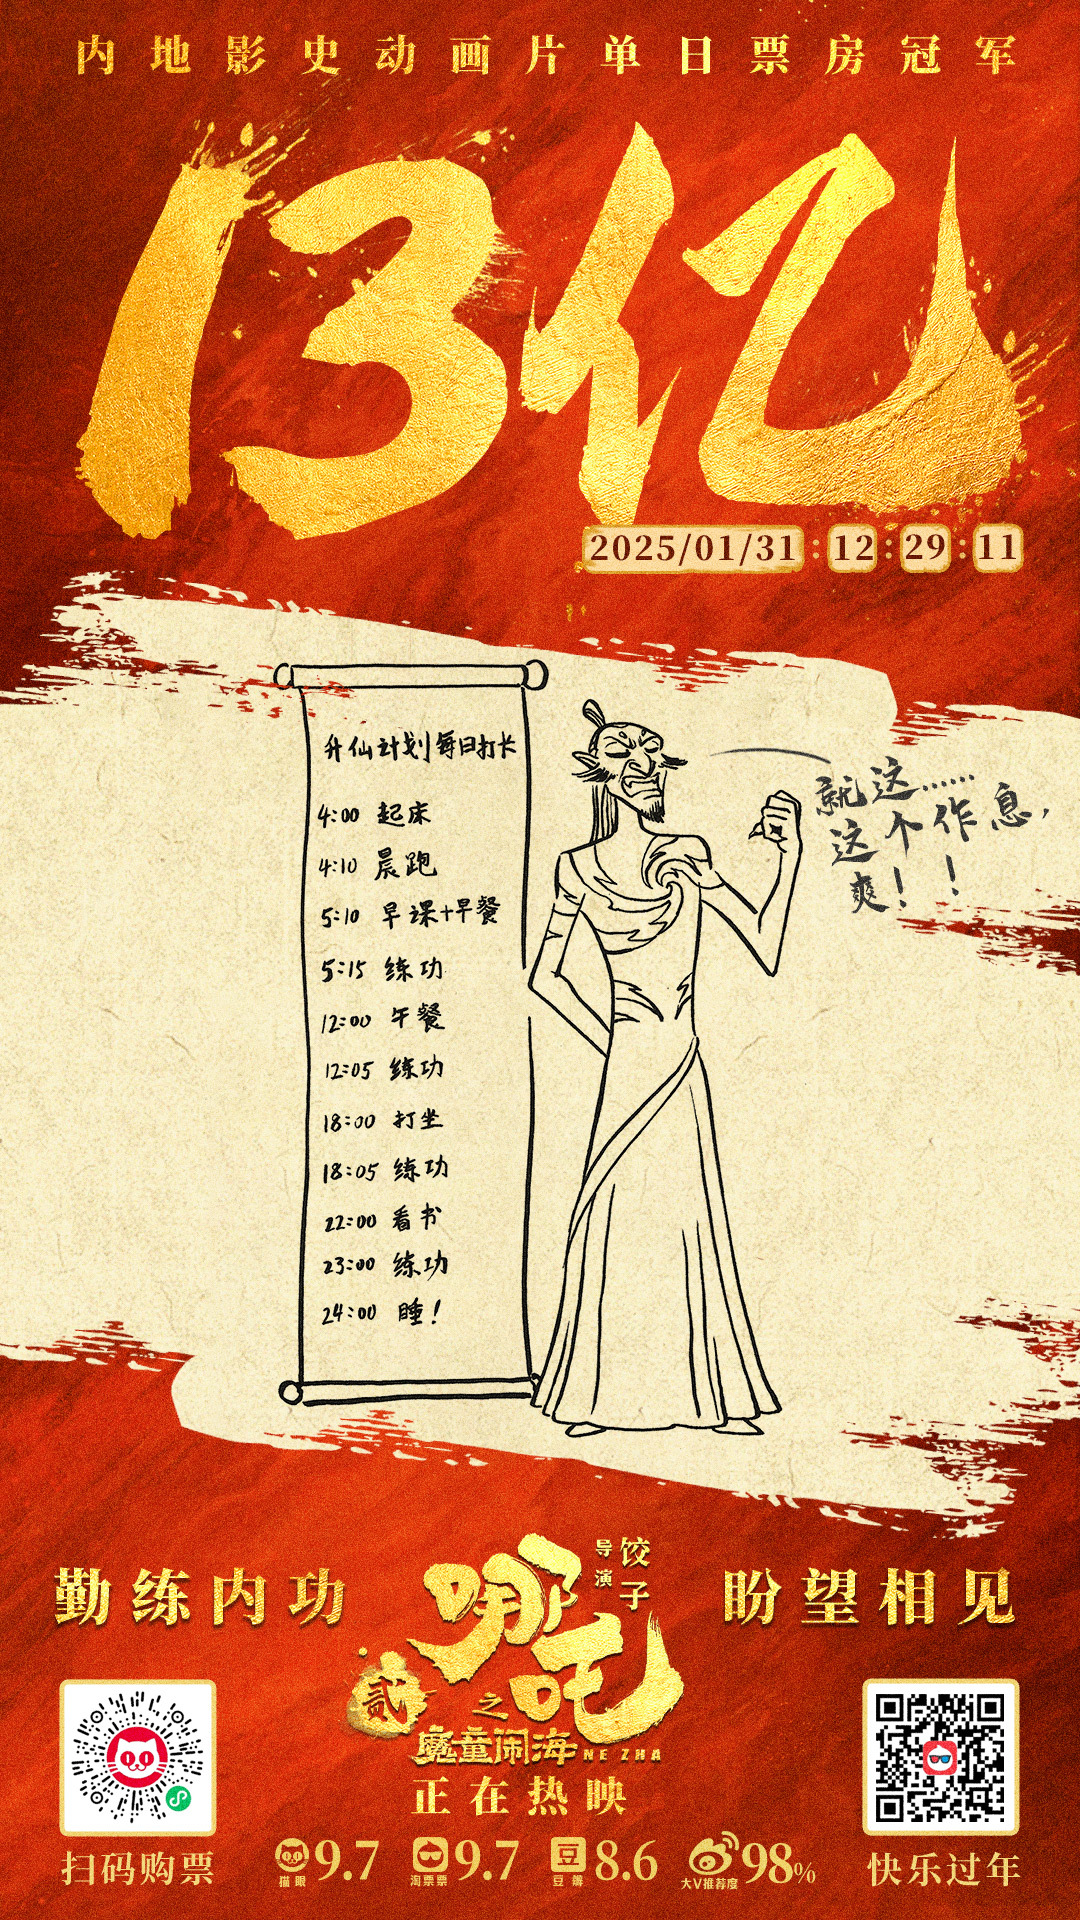 内地影史动画片单日票房冠军
13亿
2025/01/31:12:29:11
升仙计划每日打卡
4:00 起床
4:10 晨跑
5:10 早课+早餐
5:15 练功
12:00 午餐
12:05 练功
18:00 打坐
18:05 练功
22:00 看书
23:00 练功
24:00 睡！
就这……
这个作息，
爽！！
勤练内功
导演 饺子
哪吒
贰 之
魔童闹海 NE ZHA
盼望相见
正在热映
扫码购票
猫眼 9.7
淘票票 9.7
豆 豆瓣 8.6
大V推荐度 98%
快乐过年